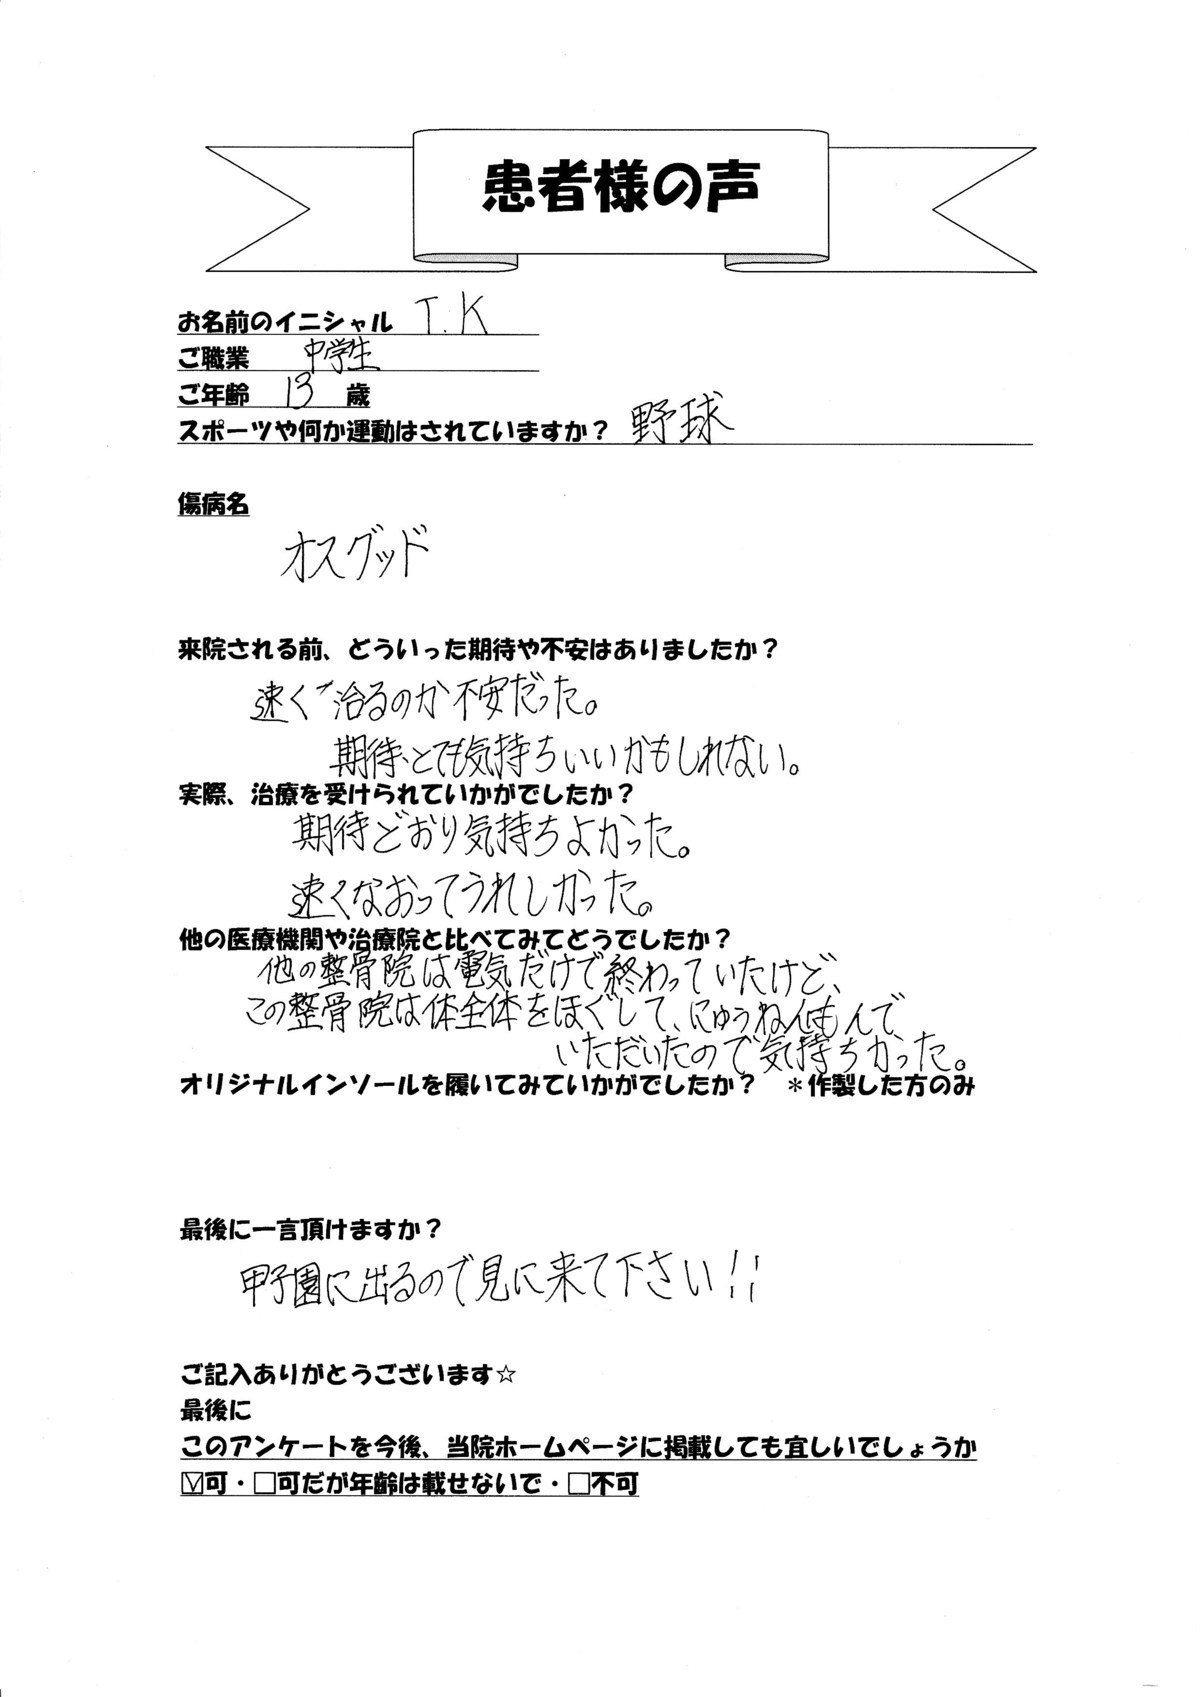 患者様の声
お名前のイニシャル T.K
ご職業 中学生
ご年齢 13 歳
スポーツや何か運動はされていますか？ 野球
傷病名
オスグッド
来院される前、どういった期待や不安はありましたか？
速くで治るのか不安だった。
期待、とても気持ちいいかもしれない。
実際、治療を受けられていかがでしたか？
期待どおり気持ちよかった。
速くなおってうれしかった。
他の医療機関や治療院と比べてみてどうでしたか？
他の整骨院は電気だけで終わっていたけど、
この整骨院は体全体をほぐして、にゅうねんもんで
いただいたので気持ちかった。
オリジナルインソールを履いてみていかがでしたか？ ＊作製した方のみ
最後に一言頂けますか？
甲子園に出るので見に来て下さい!!
ご記入ありがとうございます☆
最後に
このアンケートを今後、当院ホームページに掲載しても宜しいでしょうか
☑可・□可だが年齢は載せないで・□不可